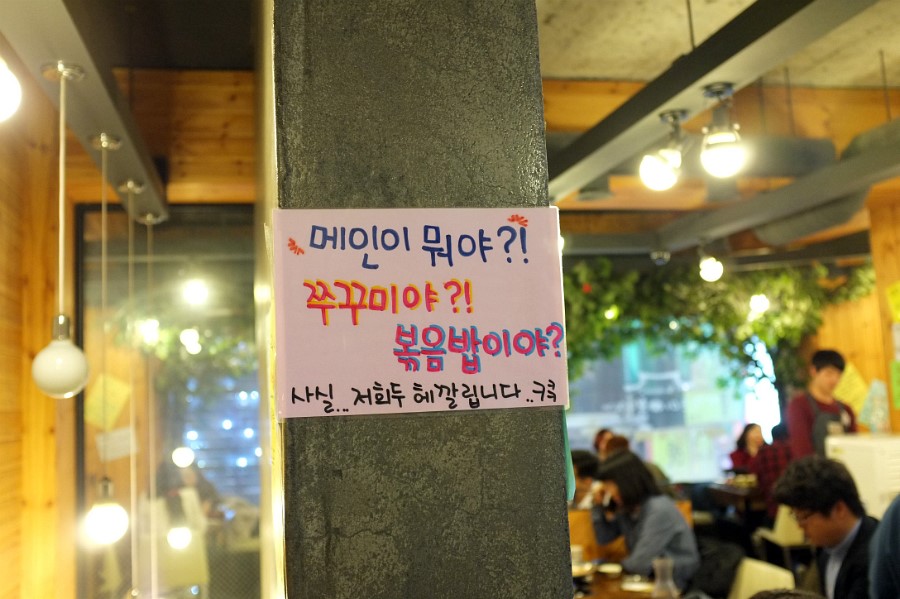 메인이 뭐야?!
쭈꾸미야?!
볶음밥이야?
사실.. 저희두 헤깔립니다..쿠쿡